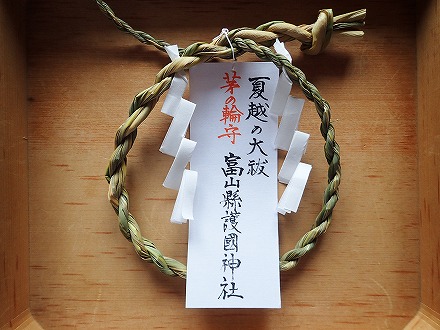 夏越の大祓
茅の輪守
富山縣護國神社